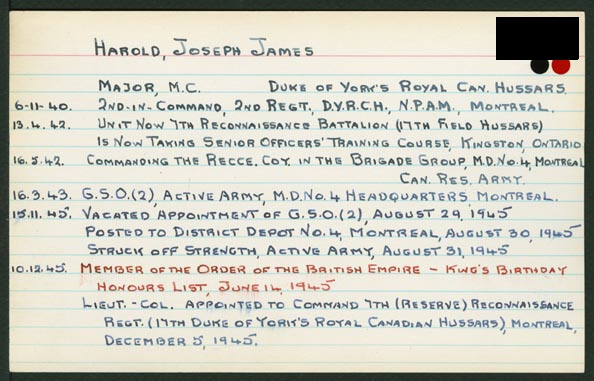 HAROLD, JOSEPH JAMES
MAJOR, M.C. DUKE OF YORK'S ROYAL CAN. HUSSARS
6-11-40. 2ND-IN-COMMAND, 2ND REGT., D.Y.R.C.H., N.P.A.M., MONTREAL.
13.4.42. UNIT NOW 7TH RECONNAISSANCE BATTALION (17TH FIELD HUSSARS)
IS NOW TAKING SENIOR OFFICERS' TRAINING COURSE, KINGSTON, ONTARIO
16.5.42. COMMANDING THE RECCE. COY. IN THE BRIGADE GROUP, M.D. NO. 4, MONTREAL
CAN. RES. ARMY.
16.3.43. G.S.O.(2), ACTIVE ARMY, M.D. NO. 4 HEADQUARTERS, MONTREAL.
15.11.45. VACATED APPOINTMENT OF G.S.O.(2), AUGUST 29, 1945
POSTED TO DISTRICT DEPOT NO. 4, MONTREAL, AUGUST 30, 1945
STRUCK OFF STRENGTH, ACTIVE ARMY, AUGUST 31, 1945
10.12.45. MEMBER OF THE ORDER OF THE BRITISH EMPIRE - KING'S BIRTHDAY
HONOURS LIST, JUNE 14, 1945
LIEUT.-COL. APPOINTED TO COMMAND 7TH (RESERVE) RECONNAISSANCE
REGT. (17TH DUKE OF YORK'S ROYAL CANADIAN HUSSARS), MONTREAL,
DECEMBER 5, 1945.